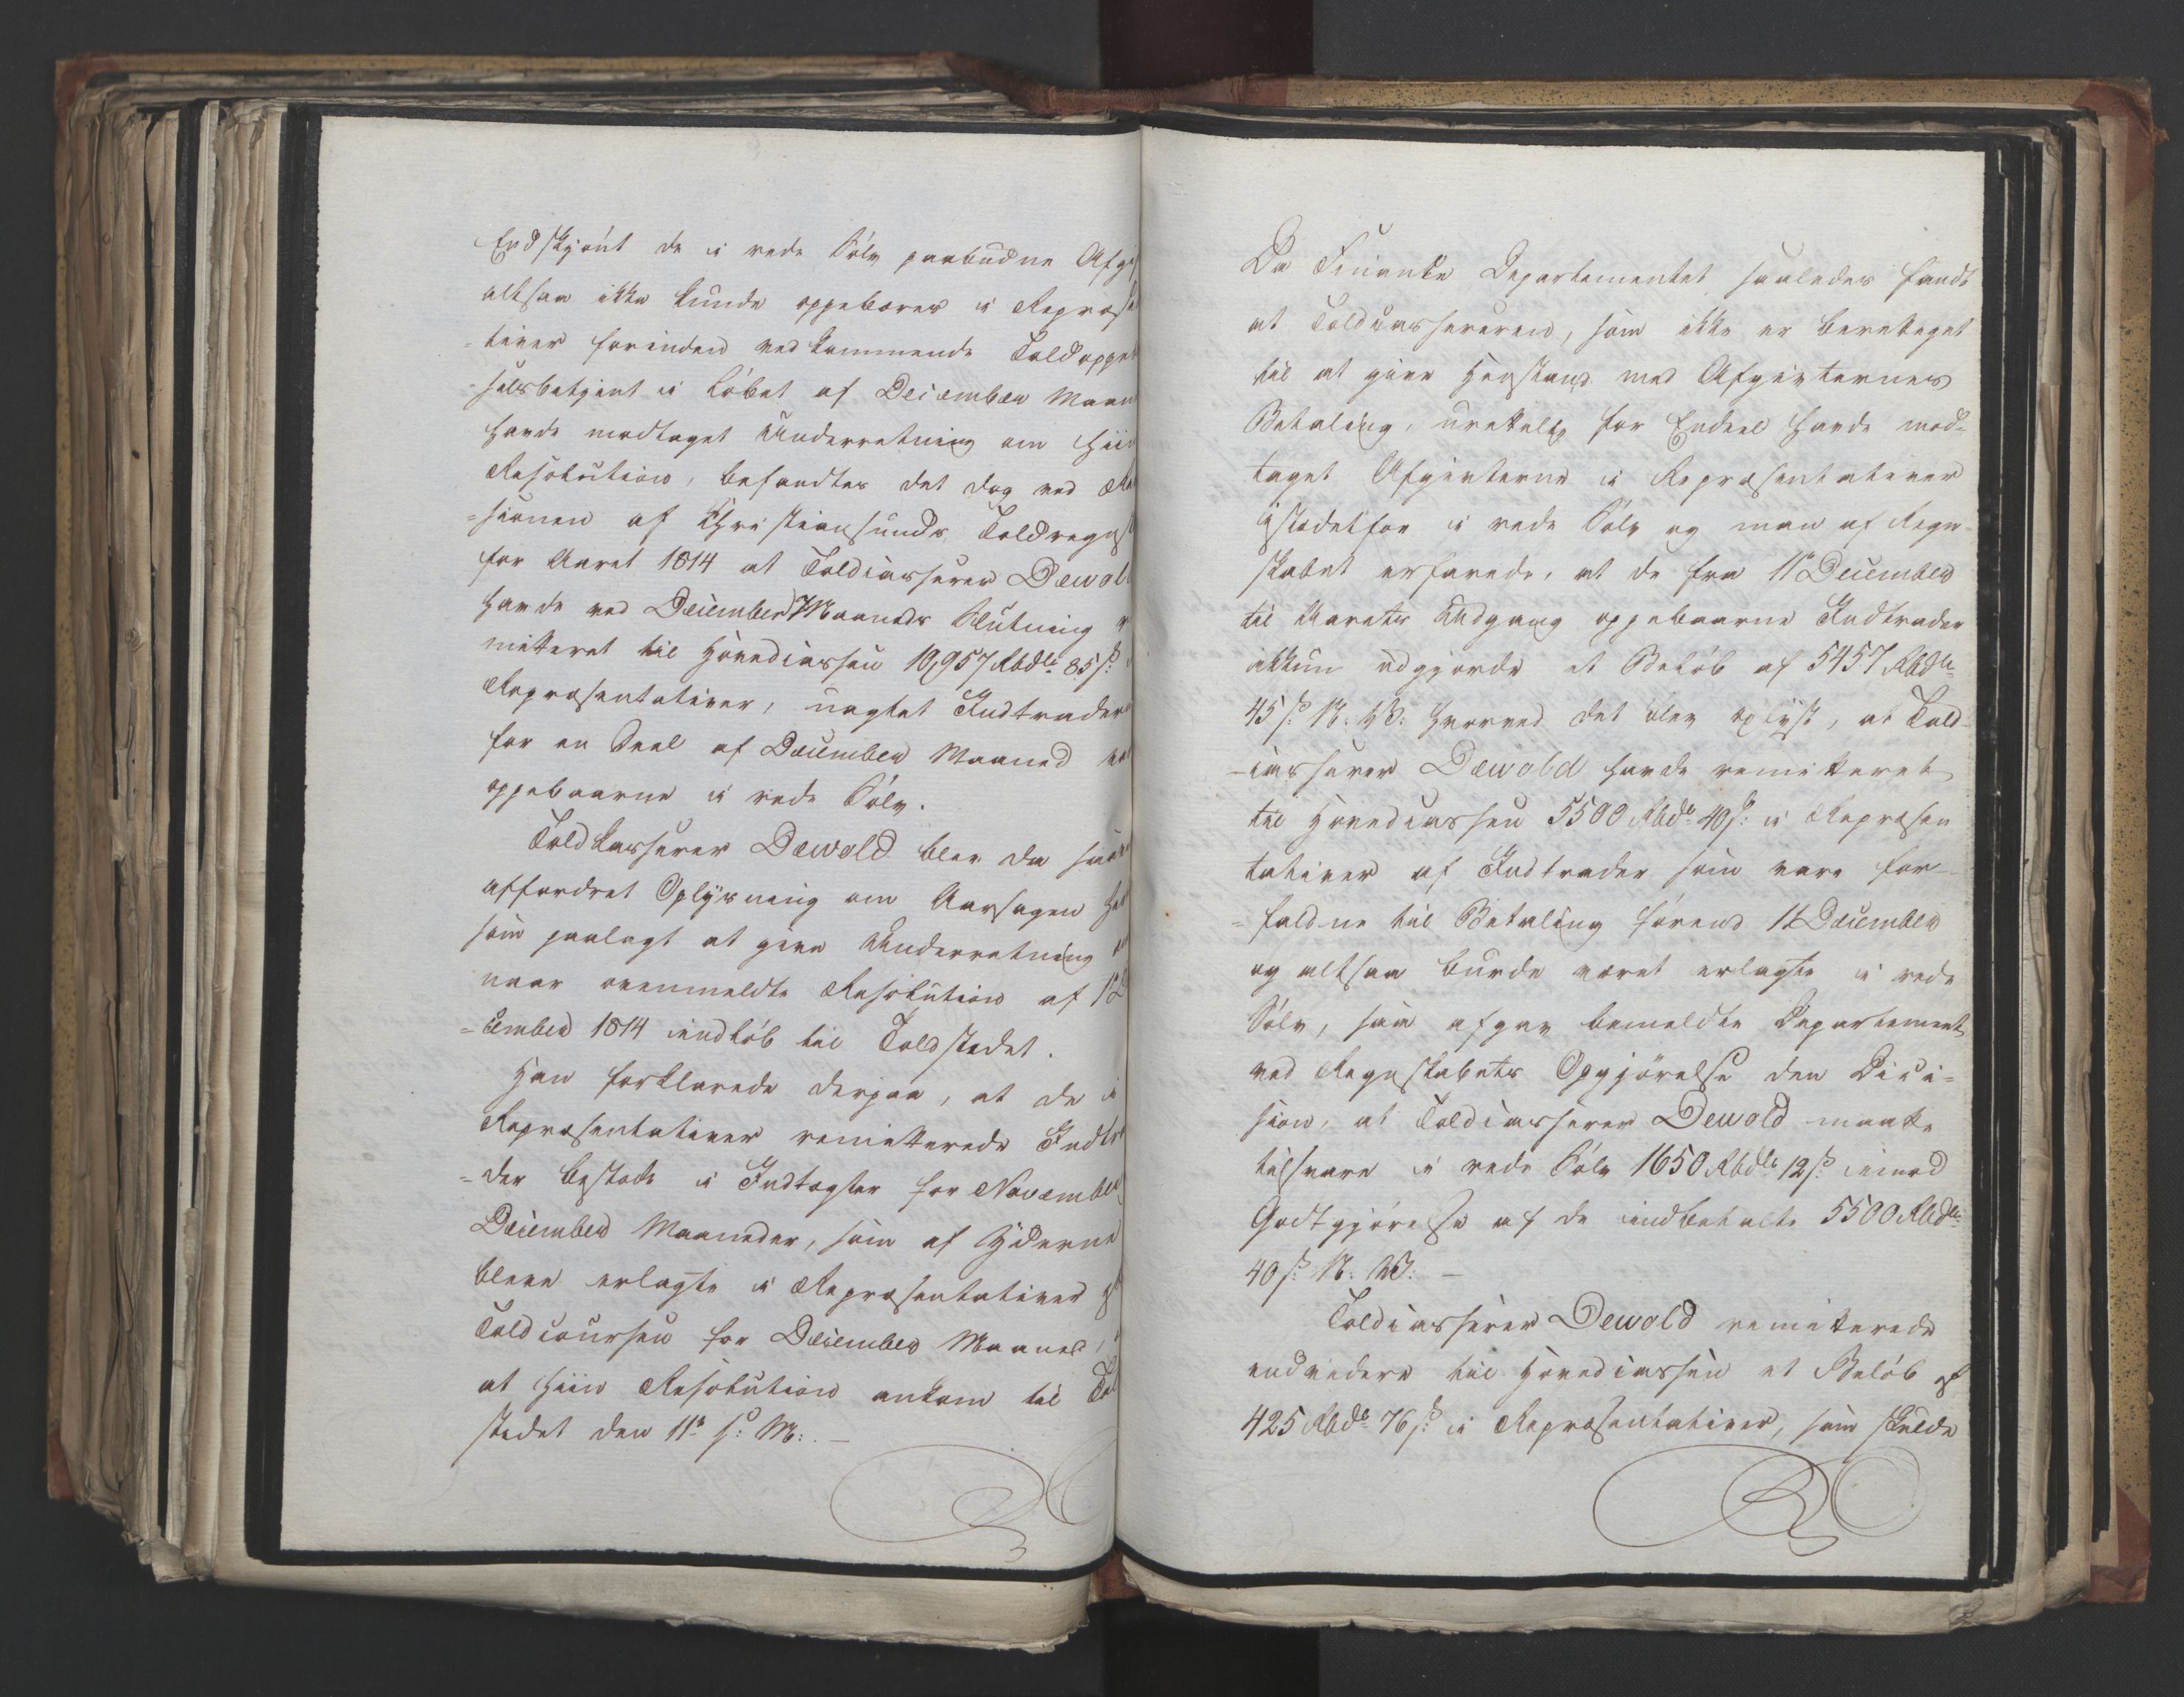 Endskjønt de i rede Sølv paabudne Afgi
altsaa ikke kunde oppebæres i Repræse
=tiver forinden vedkommende Toldoppeb
=selsbetjent i Løbet af December Maan
havde modtaget Underretning om hiin
Resolution, befandtes det dog ved Re
=sionen af Christiansunds Toldregns
for Aaret 1814 at Toldcasserer Dewol
havde ved December Maaneds Slutning r
mitteret til Hovedcassen 10,957 Rbdlr 85 s:
Repræsentativer, uagtet Indtrader
for en Deel af December Maaned va
oppebaarne i rede Sølv.
Toldkasserer Dewold blev da saa
affordret Oplysning om Aarsagen he
som paalagt at give Underretning
naar ovenmeldte Resolution af 1 D
=cember 1814 indløb til Toldstedet.
Han forklarede derpaa, at de i
Repræsentativer remitterede Indtr
=der bestode i Indtægter for November
December Maaneder, som af Yderne
bleve erlagte i Repræsentativer
Toldcoursen for December Maaned,
at hiin Resolution ankom til Tol
stedet den 11te s: M: . —
Da Finants Departementet saaledes fandt
at Toldcassereren, som ikke er berettiget
til at give Henstand med Afgivternes
Betaling, urettelig for Endeel havde mod=
taget Afgivterne i Repræsentativer
istedetfor i rede Sølv og man af Regn=
skabet erfarede, at de fra 11te December
til Aarets Udgang oppebaarne Indtrader
ikkun udgjorde et Beløb af 5457 Rbdlr
45 s: N: V: hvorved det blev oplyst, at Told=
=casserer Dewold havde remitteret
til Hovedcassen 5500 Rbdlr 40 s: i Repræsen
tativer af Indtrader som vare for=
=faldne til Betaling førend 11 December
og altsaa burde været erlagte i rede
Sølv, saa afgav bemeldte Departement
ved Regnskabets Opgjørelse den Deci=
sion, at Toldcasserer Dewold maatte
tilsvare i rede Sølv 1650 Rbdlr 12 s: imod
Godtgjørelse af de indbetalte 5500 Rbdlr
40 s: N: V: —
Toldcasserer Dewold remitterede
endvidere til Hovedcassen et Beløb af
425 Rbdlr 76 s: i Repræsentativer, som skulde